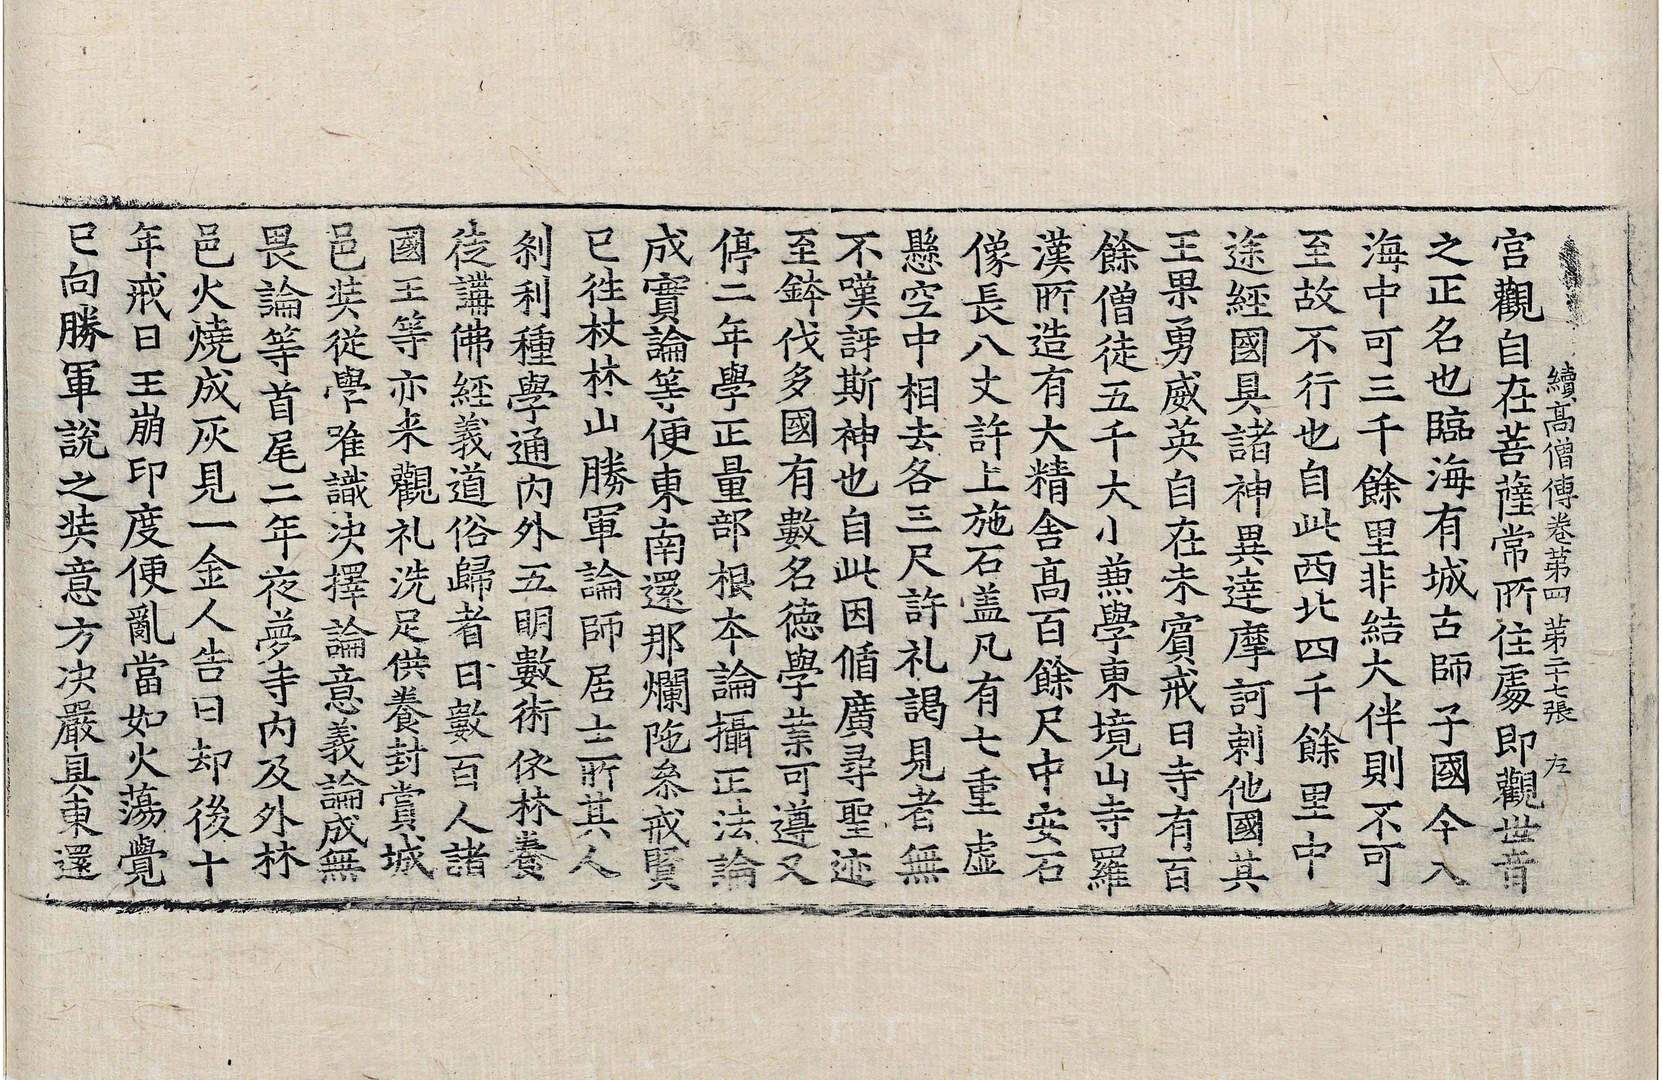 續高僧傳卷第四 第二十七張 左
宫觀自在菩薩常所住處即觀世音
之正名也臨海有城古師子國今入
海中可三千餘里非結大伴則不可
至故不行也自此西北四千餘里中
途經國具諸神異達摩訶剌他國其
王果勇威英自在未賓戒日寺有百
餘僧徒五千大小兼學東境山寺羅
漢所造有大精舎髙百餘尺中安石
像長八丈許上施石盖凡有七重虛
懸空中相去各三尺許礼謁見者無
不嘆訝斯神也自此因循廣尋聖迹
至鉢伐多國有數名德學業可遵又
停二年學正量部根本論攝正法論
成實論等便東南還那爛陁叅戒賢
已徃杖林山勝軍論師居士所其人
剎利種學通內外五明數術依林養
徒講佛經義道俗歸者日數百人諸
國王等亦来觀礼洗足供養封賞城
邑奘從學唯識决擇論意義論成無
畏論等首尾二年夜夢寺內及外林
邑火燒成灰見一金人告曰却後十
年戒日王崩印度便亂當如火蕩覺
已向勝軍說之奘意方决嚴具東還